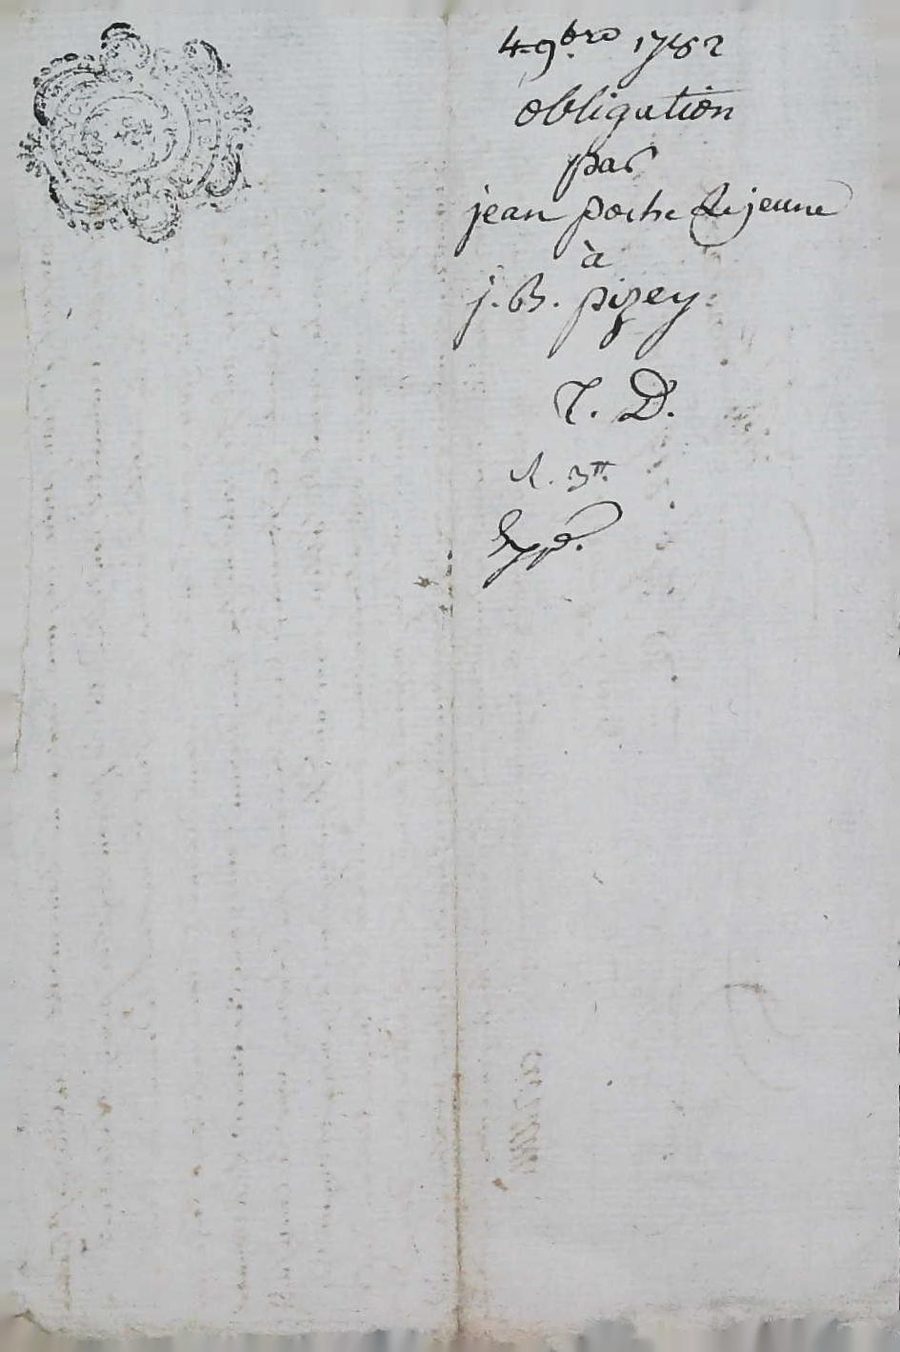 4 9.bre 1782
obligation
par
jean poche Le jeune
à
j. B. pizey
T. D.
R. 3tt
Expé.